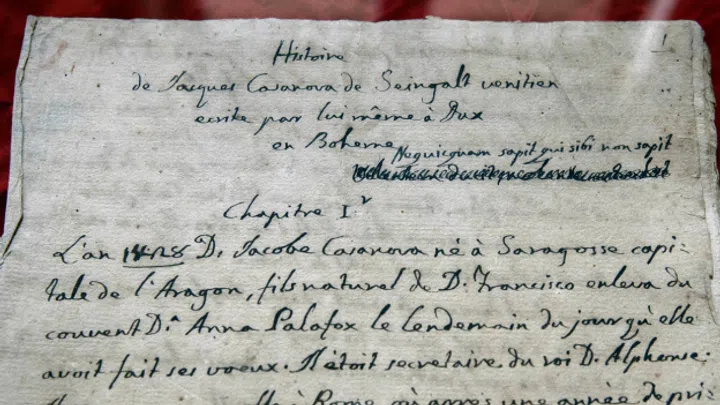 1
Histoire
de Jacques Casanova de Seingalt venitien
ecrite par lui même à Dux
en Boheme
Nequicquam sapit qui sibi non sapit
Chapitre I.r
L'an 1428 D. Jacobe Casanova né à Saragosse capi-
tale de l'Aragon, fils naturel de D. Francisco enleva du
couvent D.a Anna Palafox le lendemain du jour qu'elle
avoit fait ses voeux. Il étoit secretaire du roi D. Alphonse.
à Rome où après une année de pri-